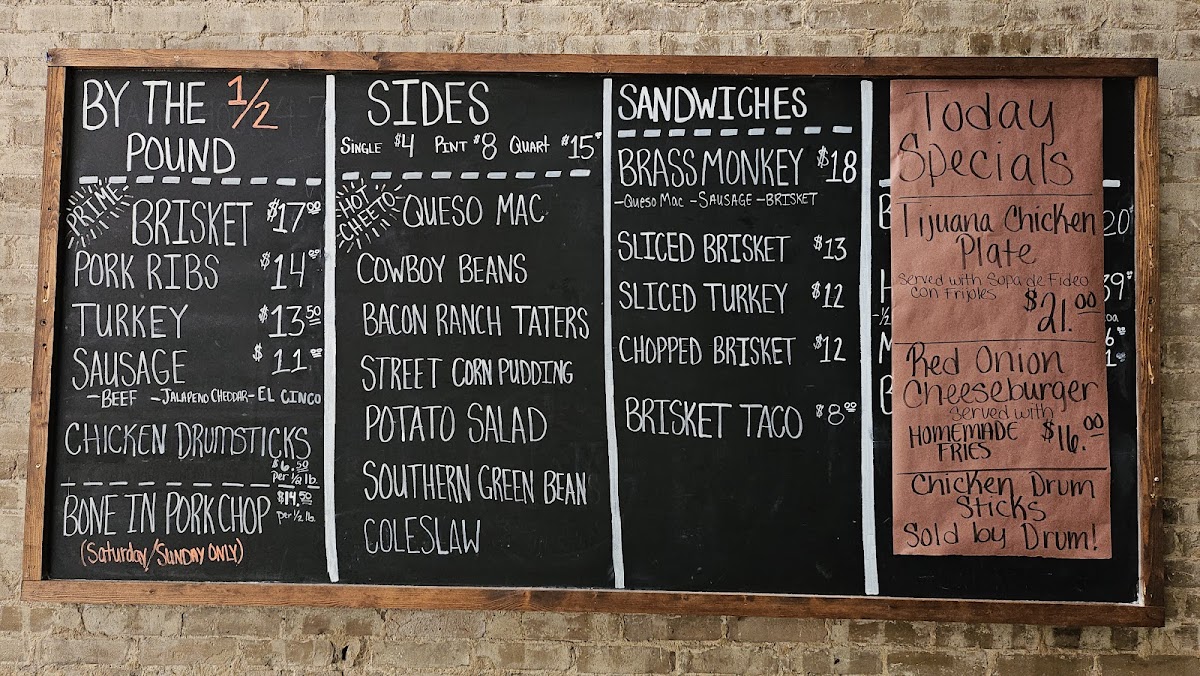 BY THE 1/2
POUND
PRIME
BRISKET $17.00
PORK RIBS $14.00
TURKEY $13.50
SAUSAGE $11.00
-BEEF -JALAPENO CHEDDAR-EL CINCO
CHICKEN DRUMSTICKS
$6.50
Per 1/2 lb.
BONE IN PORK CHOP $14.50
per 1/2 lb.
(Saturday/SUNDAY ONLY)
SIDES
SINGLE $4 PINT $8 QUART $15
HOT
CHEETO
QUESO MAC
COWBOY BEANS
BACON RANCH TATERS
STREET CORN PUDDING
POTATO SALAD
SOUTHERN GREEN BEAN
COLESLAW
SANDWICHES
BRASS MONKEY $18
-QUESO MAC -SAUSAGE -BRISKET
SLICED BRISKET $13
SLICED TURKEY $12
CHOPPED BRISKET $12
BRISKET TACO $8.00
Today
Specials
Tijuana Chicken
Plate
Served with Sopa de Fideo
con Frijoles
$21.00
Red Onion
Cheeseburger
Served with
HOMEMADE $16.00
FRIES
Chicken Drum
Sticks
Sold by Drum!